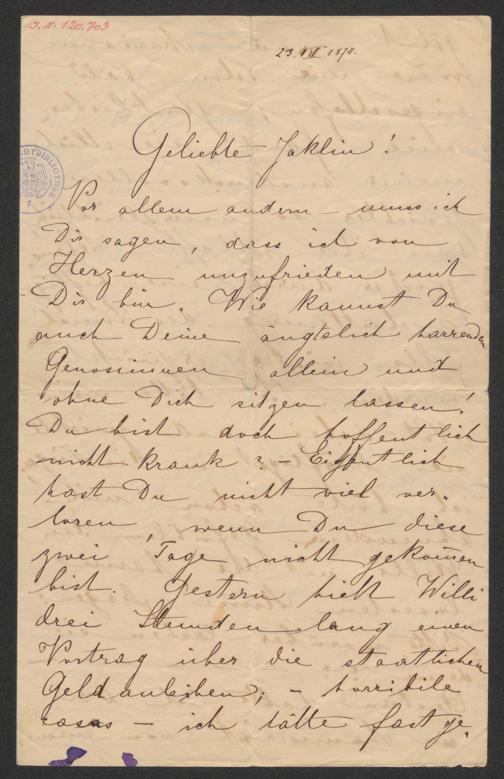 J.N. 120.703
23. VII 1874.
Geliebte Jaklin!
Vor allem andern – muss ich
Dir sagen, dass ich von
Herzen unzufrieden mit
Dir bin. Wie kannst Du
auch Deine ängtslich harrenden
Genossinnen allein und
ohne Dich sitzen lassen!
Du bist doch hoffentlich
nicht krank? – Eigentlich
hast Du nicht viel ver-
loren, wenn Du diese
zwei Tage nicht gekommen
bist. Gestern hielt Willi
drei Stunden lang einen
Vortrag über die staatlichen
Geldanleihen; – horribile
casus – ich hätte fast ge-